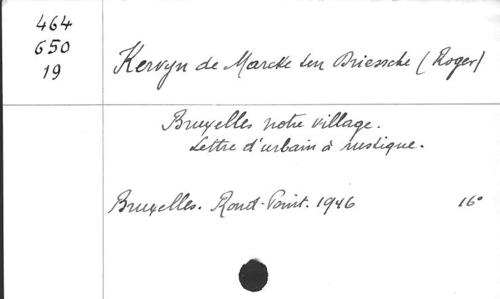 464
650
19
Kervyn de Marcke ten Driessche (Roger)
Bruxelles notre village.
Lettre d'urbain à rustique.
Bruxelles. Rond-Point. 1946 16°